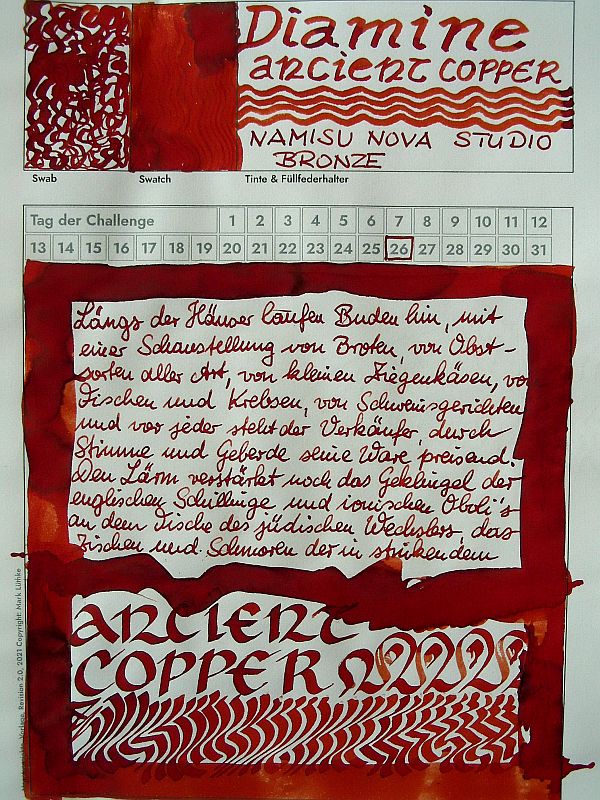 Diamine
ancient COPPER
NAMISU NOVA STUDIO
BRONZE
Swab Swatch Tinte & Füllfederhalter
Tag der Challenge 1 2 3 4 5 6 7 8 9 10 11 12
13 14 15 16 17 18 19 20 21 22 23 24 25 26 27 28 29 30 31
Längs der Häuser laufen Buden hin, mit
einer Schaustellung von Broten, von Obst-
sorten aller Art, von kleinen Ziegenkäsen, von
Fischen und Krebsen, von Schweinsgerichten
und vor jeder steht der Verkäufer, durch
Stimme und Geberde seine Ware preisend.
Den Lärm verstärkt noch das Geklingel der
englischen Schillinge und ionischen Oboli's
an dem Tische des jüdischen Wechslers, das
Zischen und Schmoren der in stinkendem
ANCIENT
COPPER
Revision 2.0, 2021 Copyright: Mark Lüthke